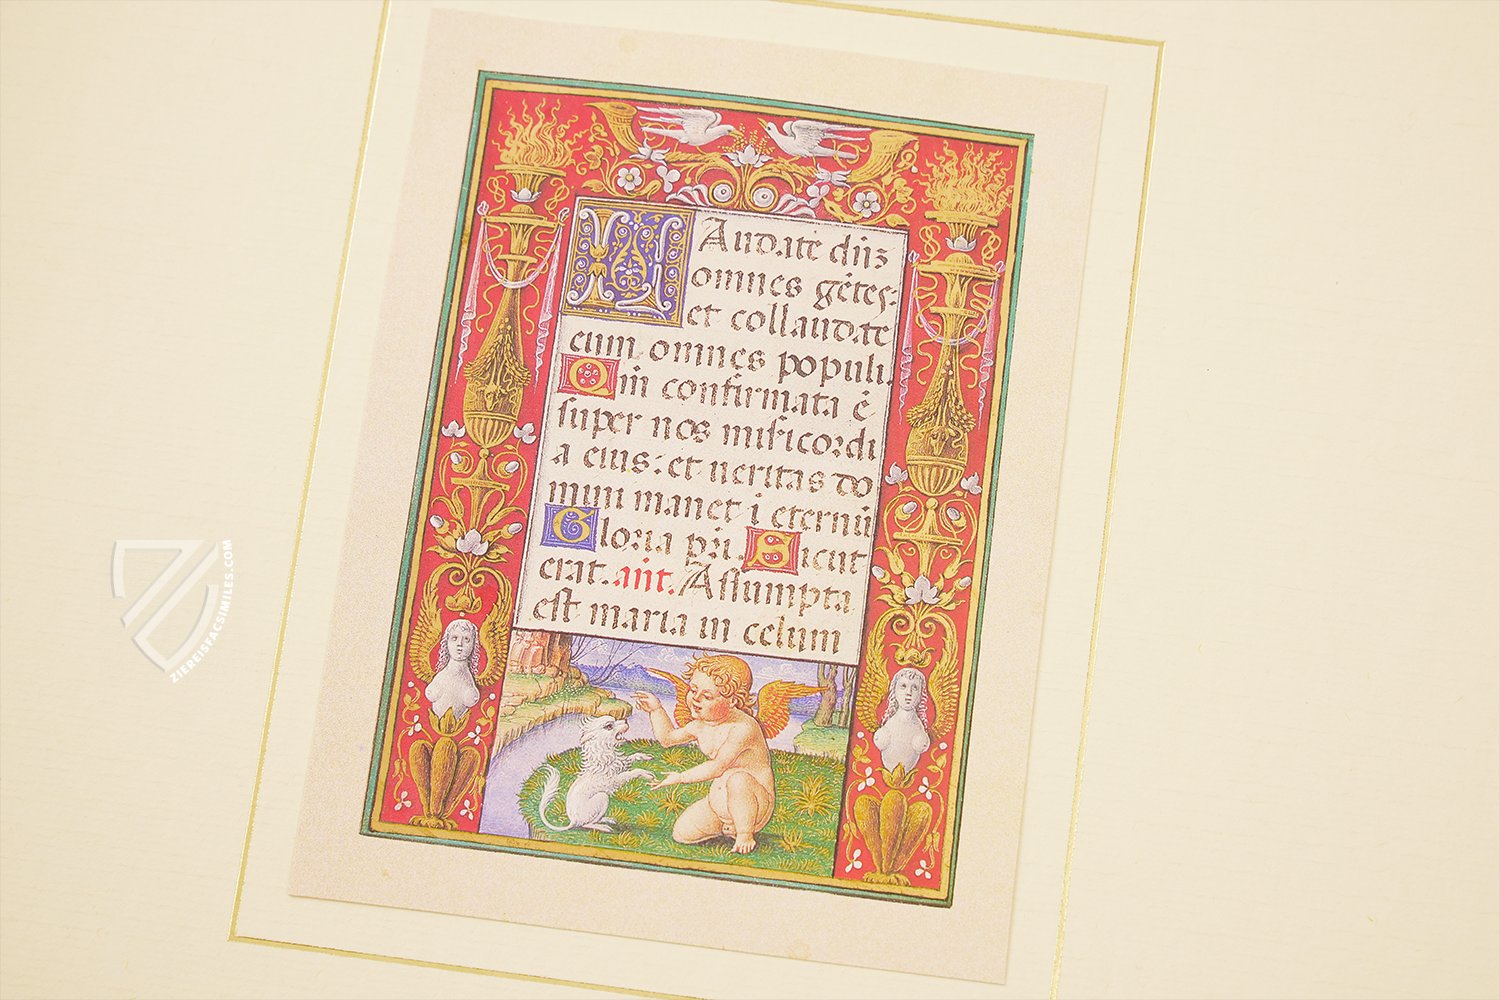 LAudate dñz
omnes gētes:
et collaudate
eum omnes populi.
Qm̄ confirmata ē
super nos mīsericordi
a eius: et ueritas do
mini manet ī eternū
Gloria pr̄i. Sicut
erat. añt. Assumpta
est maria in celum
ZIEREISFACSIMILES.COM